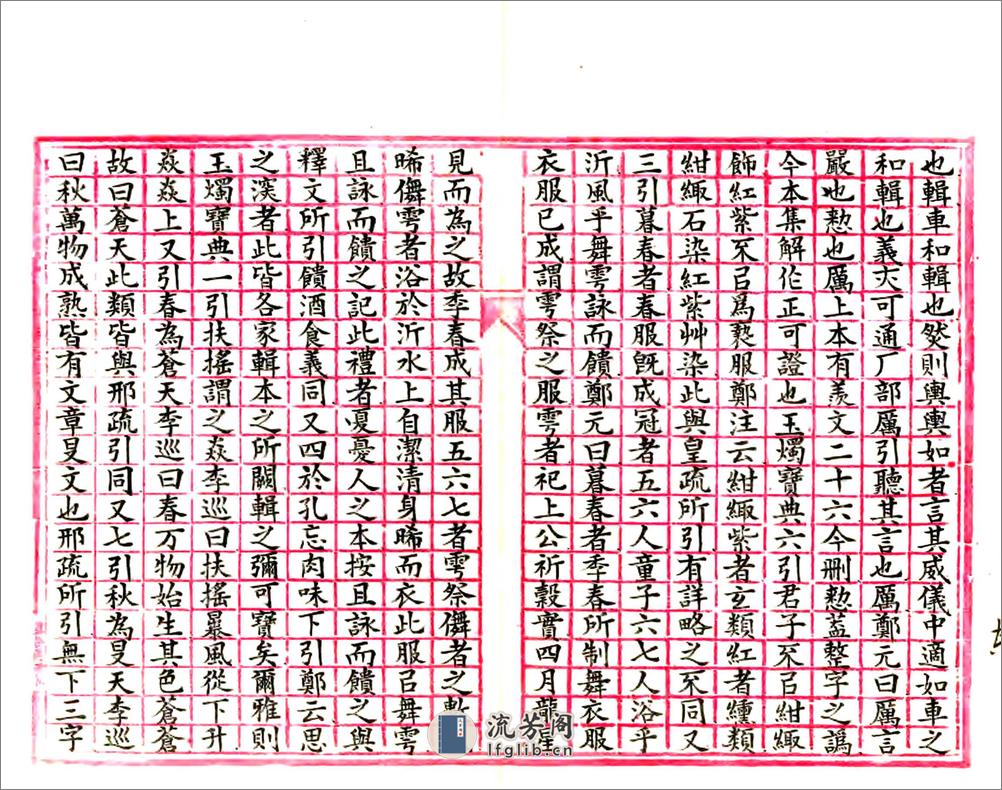 也輯車和輯也然則輿輿如者言其威儀中適如車之
和輯也義亣可通厂部厲引聽其言也厲鄭元曰厲言
嚴也懃也厲上本有羨文二十六今刪懃蓋整字之譌
今本集解作正可證也玉燭寶典六引君子不㠯紺緅
飾紅紫不㠯爲褻服鄭注云紺緅紫者玄類紅者纁類
紺緅石染紅紫艸染此與皇疏所引有詳略之不同又
三引暮春者春服旣成冠者五六人童子六七人浴乎
沂風乎舞雩詠而饋鄭元曰暮春者季春所制舞衣服
衣服已成謂雩祭之服雩者祀上公祈穀實四月龍星
見而為之故季春成其服五六七者雩祭儛者之數
晞儛雩者浴於沂水上自潔清身晞而衣此服㠯舞雩
且詠而饋之記此禮者憂憂人之本按且詠而饋之與
釋文所引饋酒食義同又四於孔忘肉味下引鄭云思
之深者此皆各家輯本之所闕輯之彌可寶矣爾雅則
玉燭寶典一引扶搖謂之猋李巡曰扶搖暴風從下升
猋猋上又引春為蒼天李巡曰春万物始生其色蒼蒼
故曰蒼天此類皆與邢疏引同又七引秋為旻天李巡
曰秋萬物成熟皆有文章旻文也邢疏所引無下三字
流芳阁
lfglib.cn